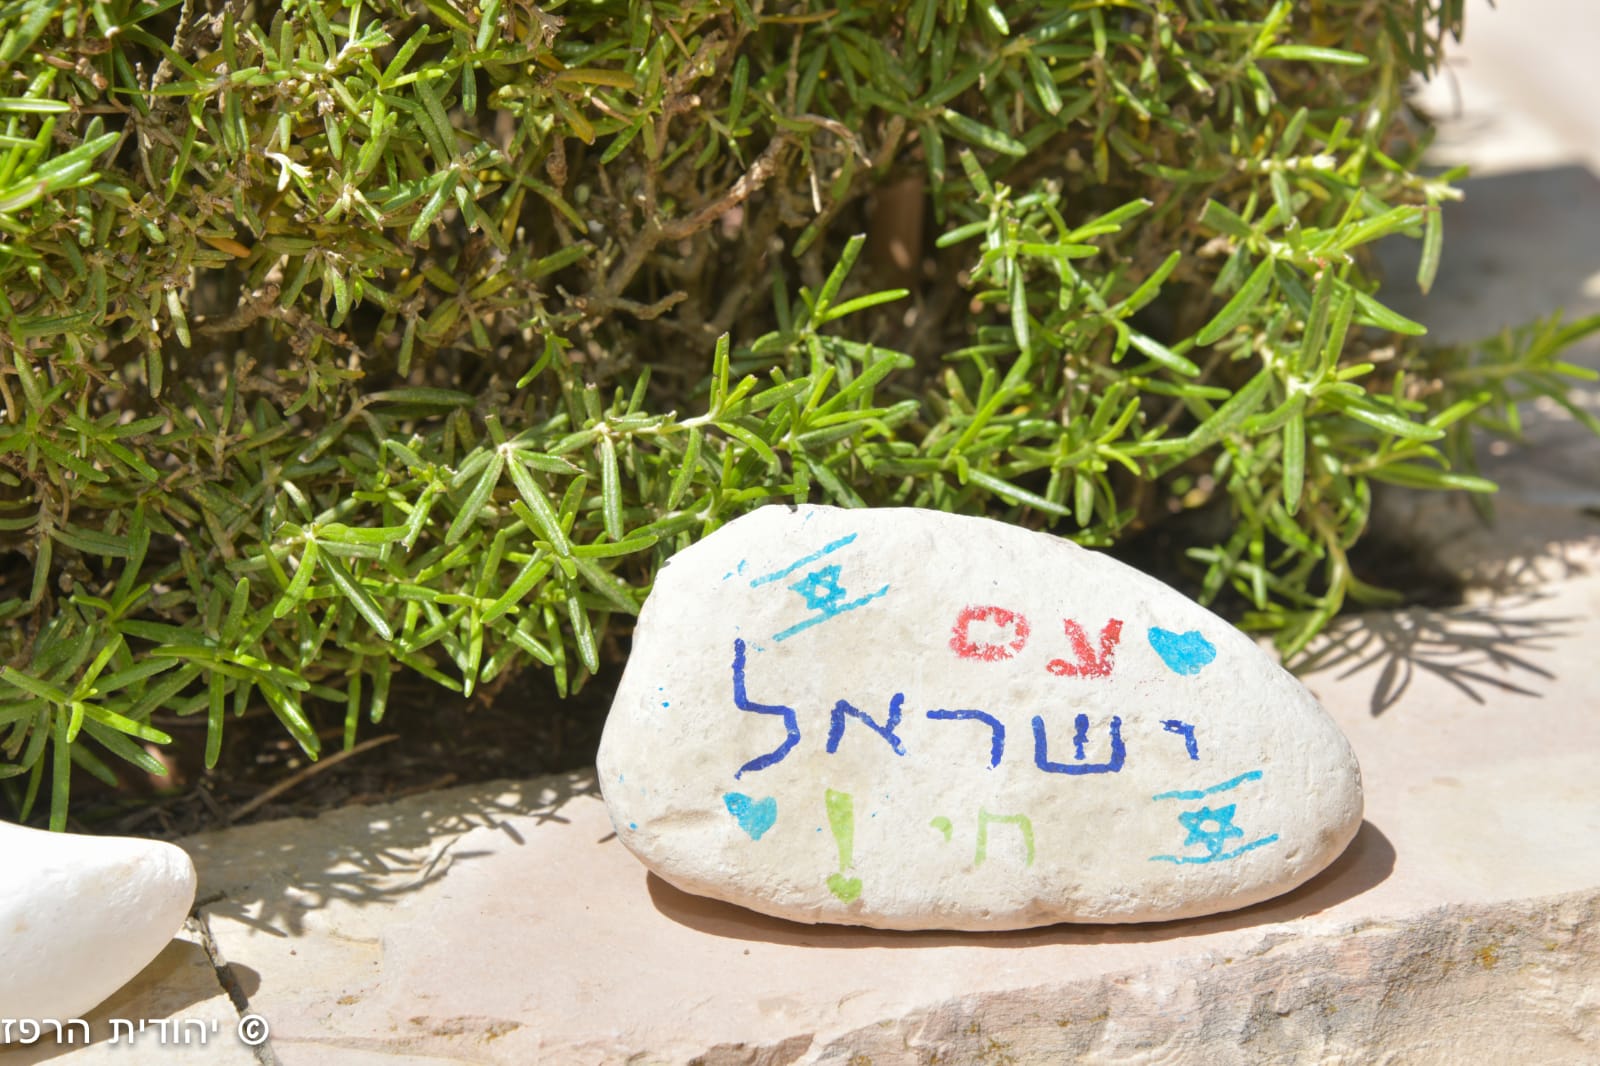 עם
ישראל
חי !
© יהודית הרפז